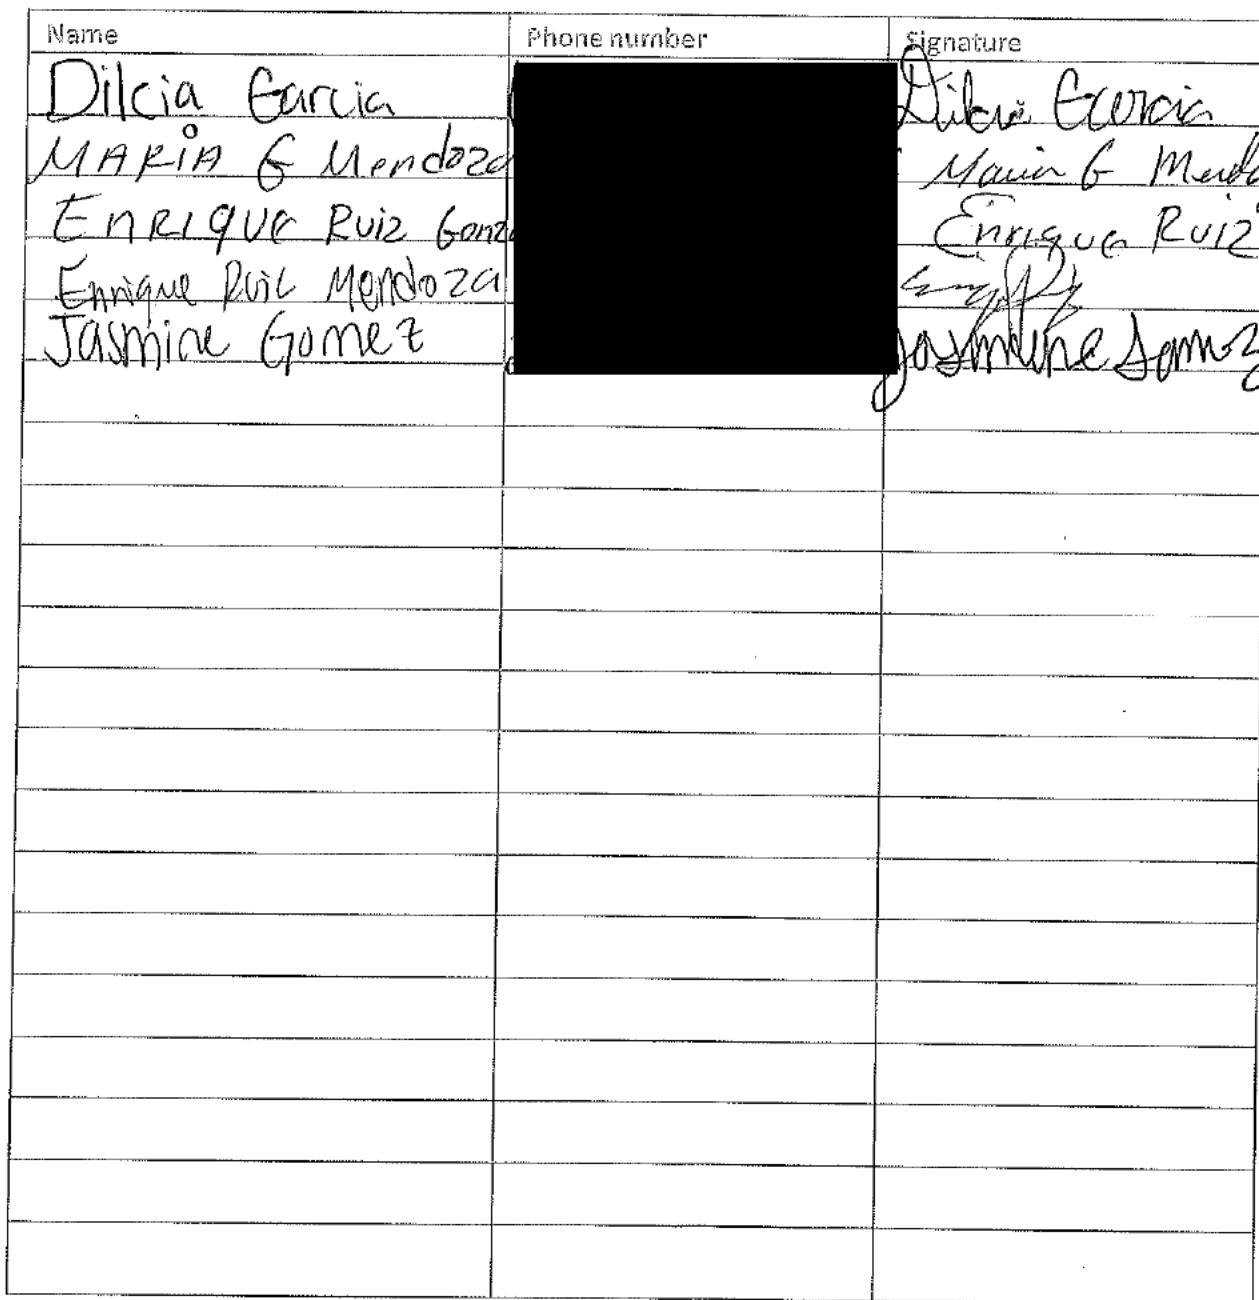 Name Phone number Signature
Dilcia Garcia Dilcia Garcia
MARIA G Mendoza Maria G
ENRIQUE Ruiz Enrique Ruiz
Enrique Ruiz Mendoza
Jasmine Gomez Jasmine Gomez